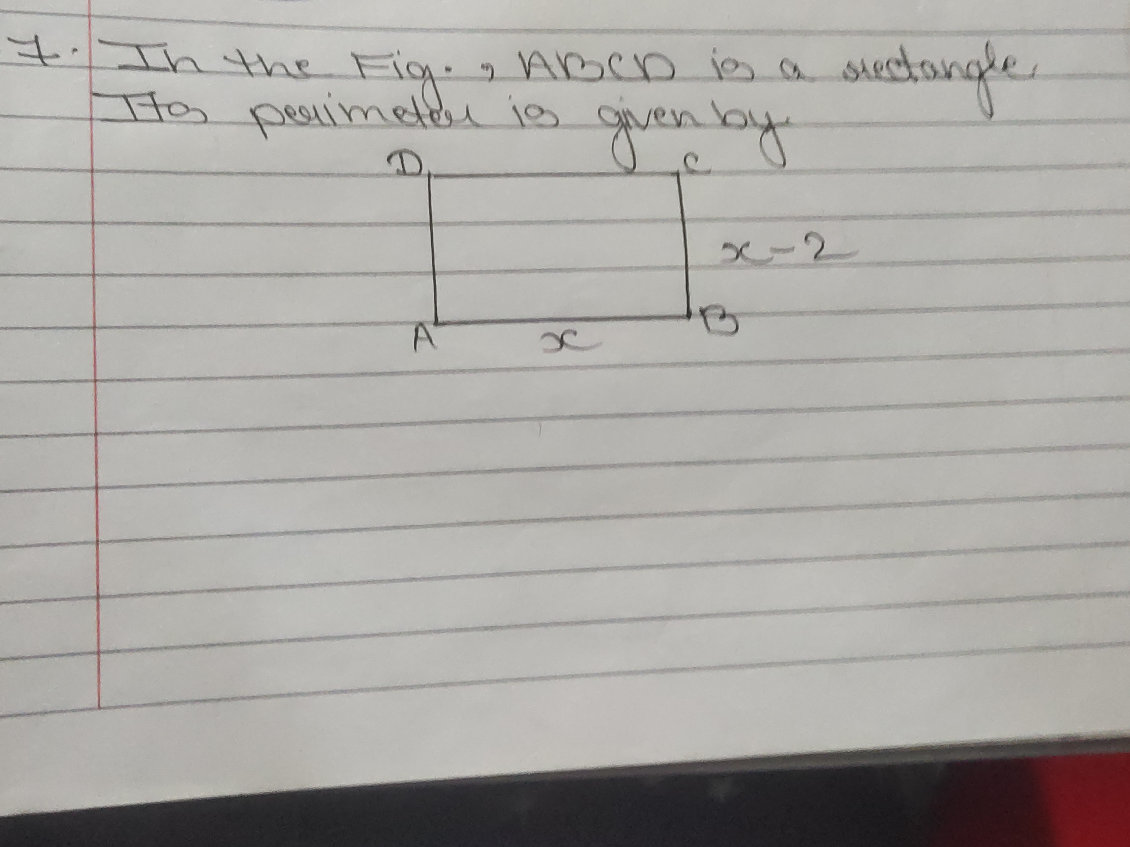 7. In the Fig., ABCD is a rectangle.
Its perimeter is given by
D C
x-2
A B
x